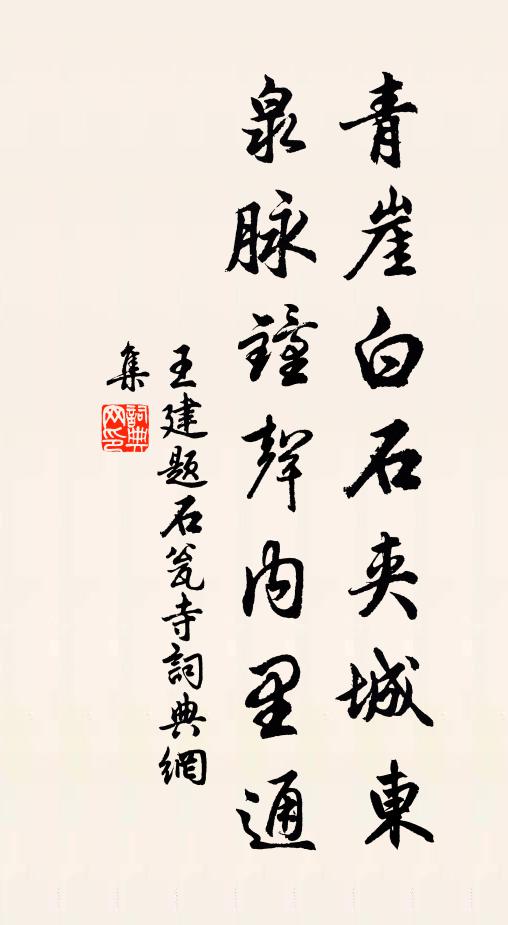 青崖白石夾城東
泉脉鐘聲内里通
王建題石瓮寺詞典網
集
詞典
网印